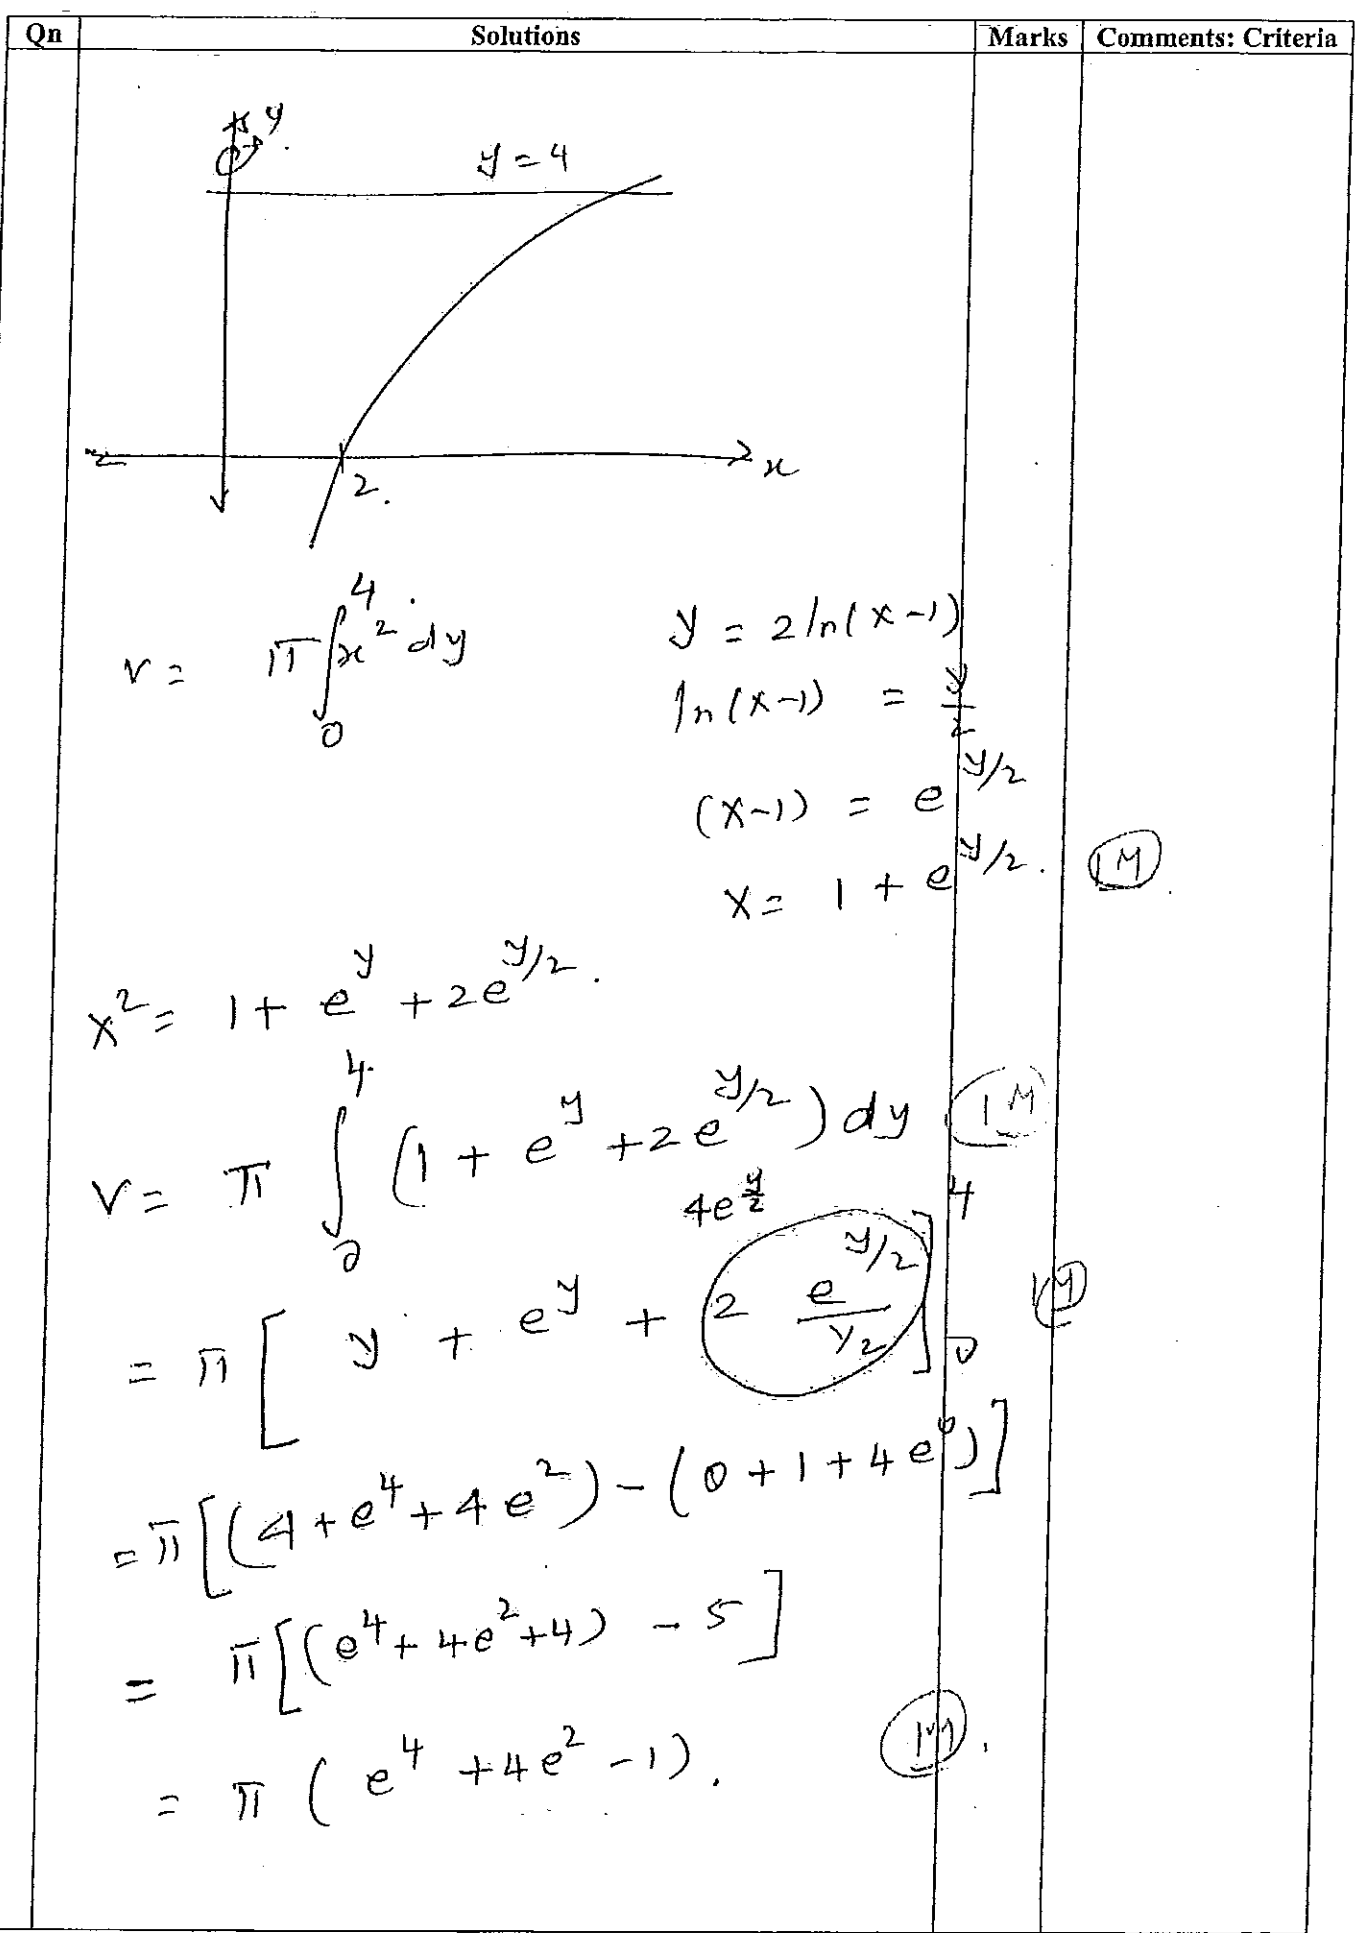 Qn Solutions Marks Comments: Criteria
y
y = 4
x
2.
V = π∫₀⁴ x² dy
y = 2 ln(x-1)
ln(x-1) = y/2
(x-1) = e^(y/2)
x = 1 + e^(y/2). 1M
x² = 1 + e^y + 2e^(y/2).
V = π ∫₀⁴ (1 + e^y + 2e^(y/2)) dy 1M
4e^(y/2)
= π [ y + e^y + 2 e^(y/2)/(1/2) ]₀⁴ 1M
= π[(4 + e⁴ + 4e²) - (0 + 1 + 4e⁰)]
= π[(e⁴ + 4e² + 4) - 5]
= π (e⁴ + 4e² - 1). 1M.